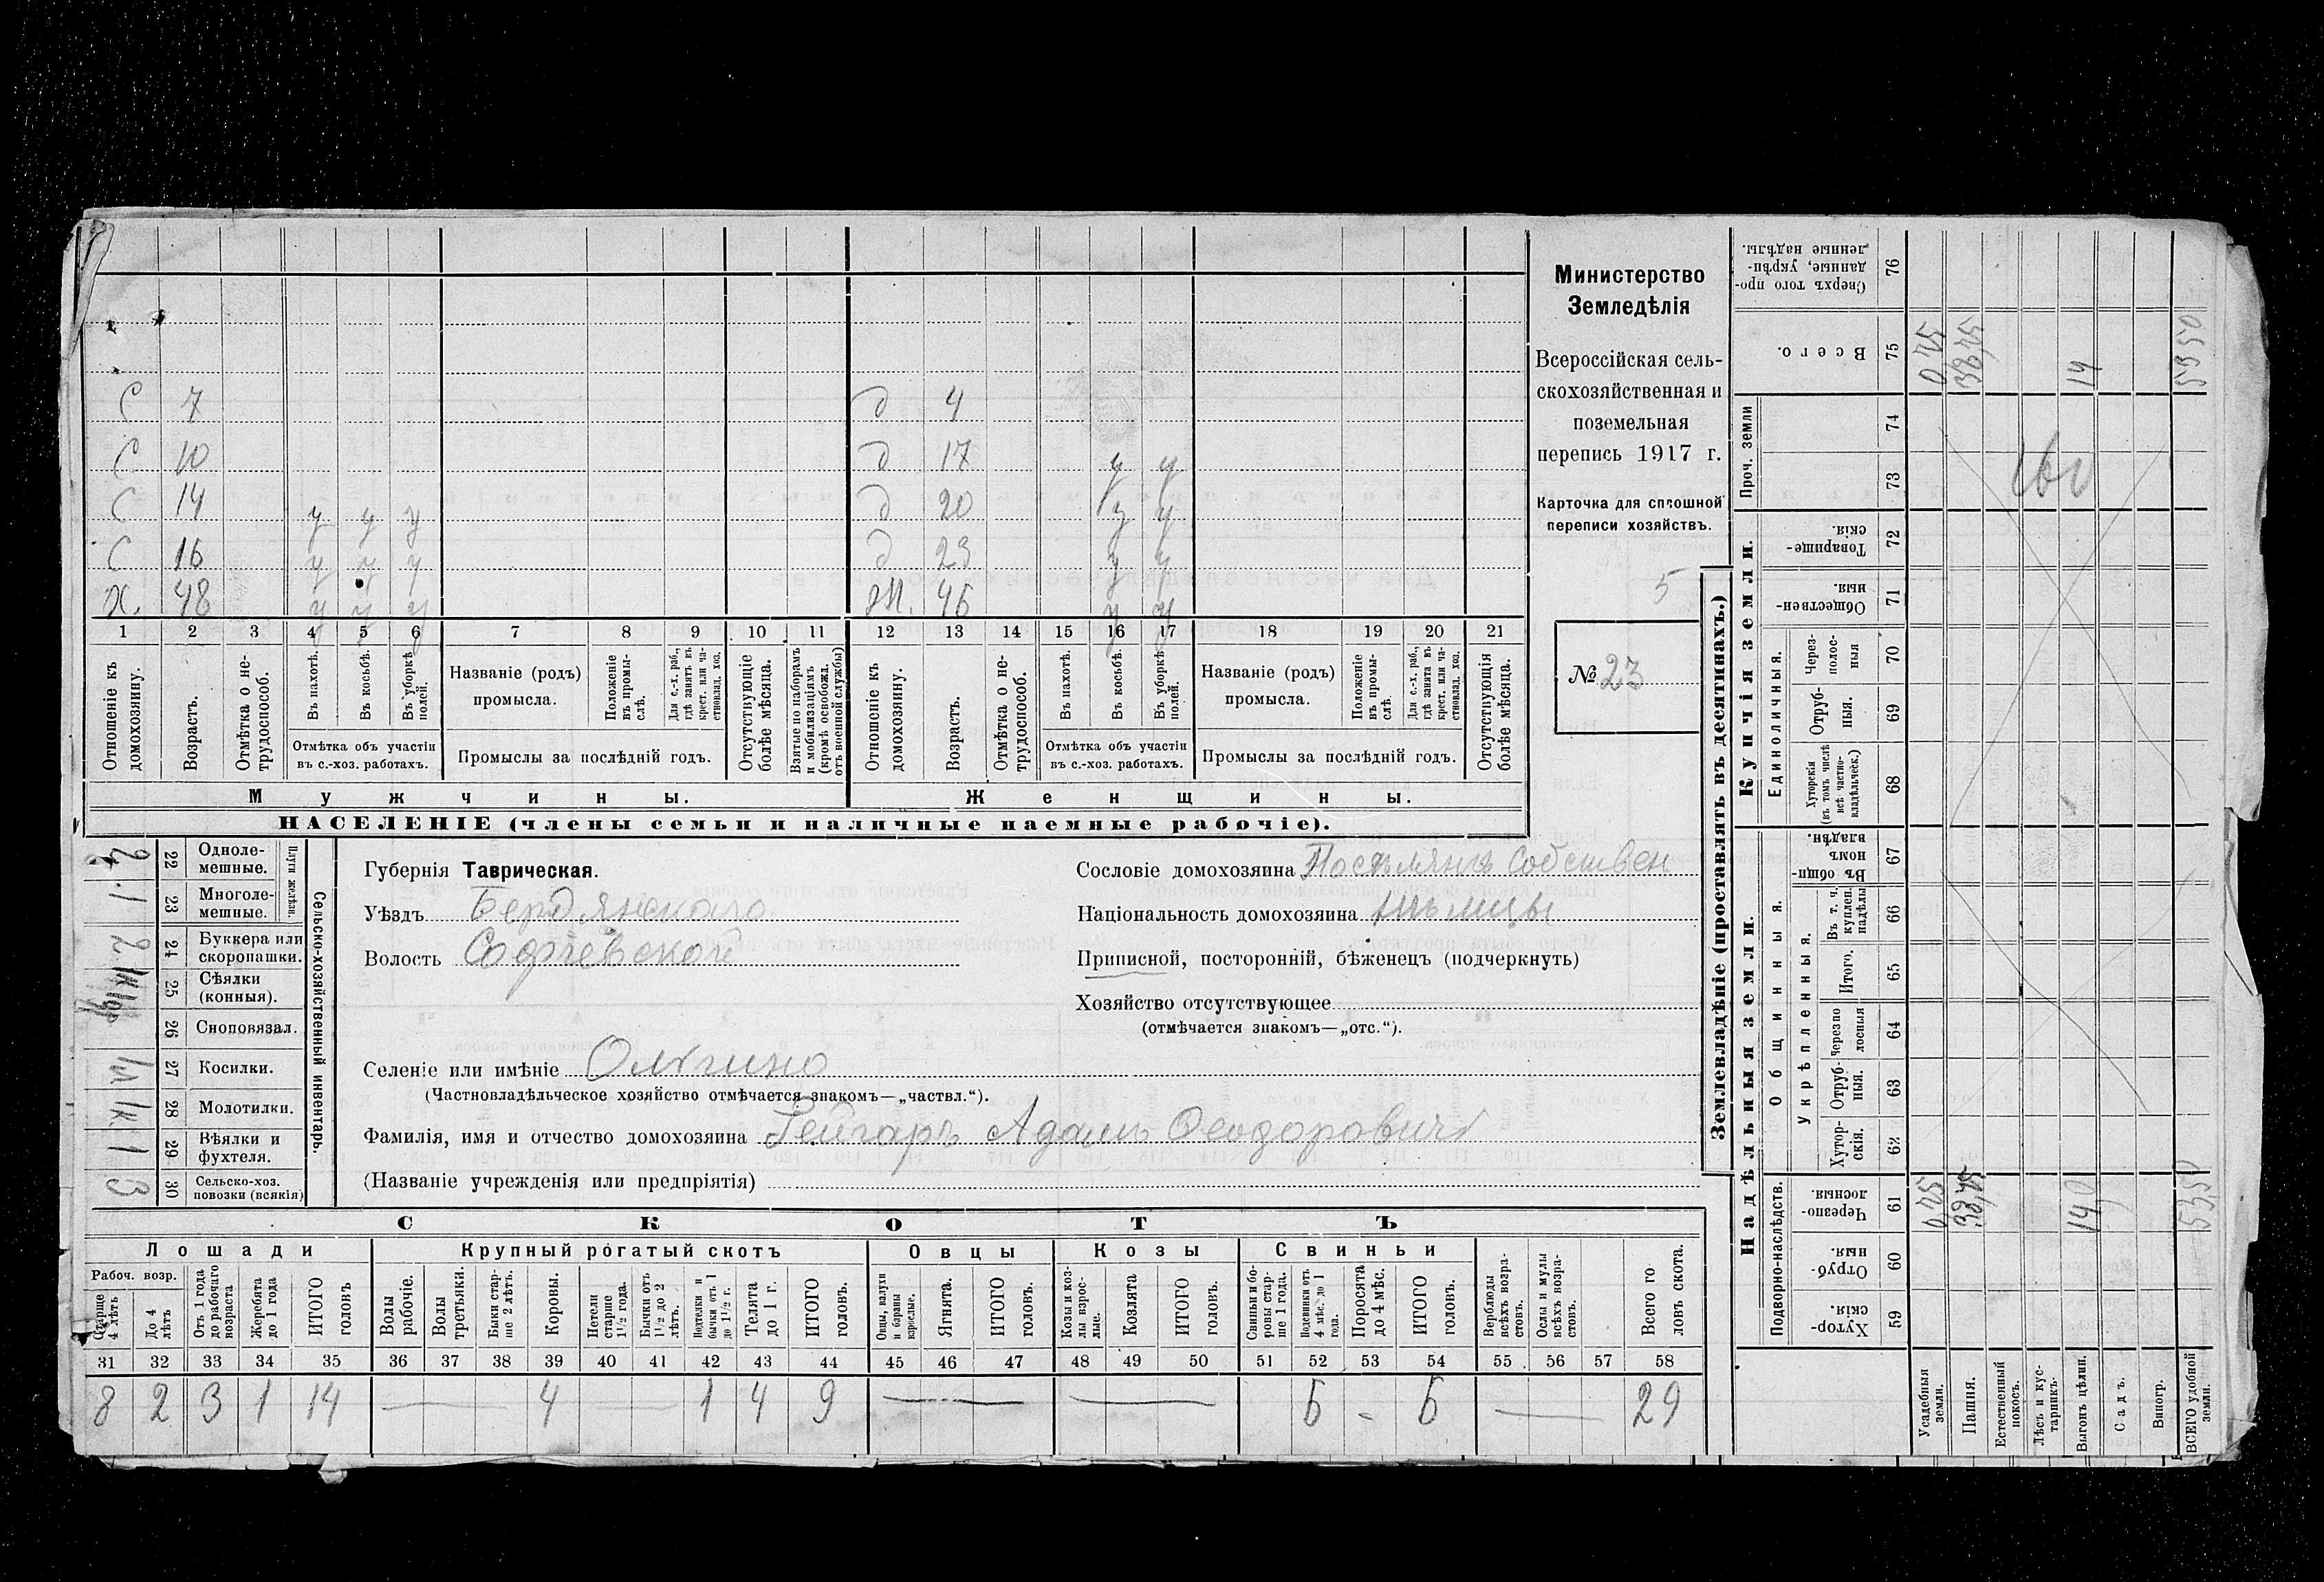 С 7 д 4
С 10 д 17 у у
С 14 у у у д 20 у у
С 16 у у у д 23 у у
Х. 48 у у у Ж. 46 у у
1 2 3 4 5 6 7 8 9 10 11 12 13 14 15 16 17 18 19 20 21
Отношеніе къ домохозяину.
Возрастъ.
Отмѣтка о не-
трудоспособ.
Въ пахотѣ.
Въ косьбѣ.
Въ уборкѣ
полей.
Отмѣтка объ участіи
въ с.-хоз. работахъ.
Названіе (родъ)
промысла.
Положеніе
въ промы-
слѣ.
Для с.-х. раб.,
гдѣ занятъ въ
крест. или ча-
стновлад. хоз.
Промыслы за послѣдній годъ.
Отсутствующіе
болѣе мѣсяца.
Взятые по наборамъ
и мобилизаціямъ
(кромѣ освобожд.
отъ военной службы)
Отношеніе къ
домохозяину.
Возрастъ.
Отмѣтка о не-
трудоспособ.
Въ пахотѣ.
Въ косьбѣ.
Въ уборкѣ
полей.
Отмѣтка объ участіи
въ с.-хоз. работахъ.
Названіе (родъ)
промысла.
Положеніе
въ промы-
слѣ.
Для с.-х. раб.,
гдѣ занята въ
крест. или ча-
стновлад. хоз.
Промыслы за послѣдній годъ.
Отсутствующія
болѣе мѣсяца.
Мужчины.
Женщины.
НАСЕЛЕНІЕ (члены семьи и наличные наемные рабочіе).
Министерство
Земледѣлія
Всероссійская сель-
скохозяйственная и
поземельная
перепись 1917 г.
Карточка для сплошной
переписи хозяйствъ.
5
№ 23
Губернія Таврическая.
Уѣздъ Бердянскаго
Волость Софіевской
Селеніе или имѣніе Ольгино
(Частновладѣльческое хозяйство отмѣчается знакомъ—„частвл.“).
Фамилія, имя и отчество домохозяина Гейгаръ Адамъ Феодоровичъ
(Названіе учрежденія или предпріятія)
Сословіе домохозяина Поселянъ Собствен
Національность домохозяина нѣмцы
Приписной, посторонній, бѣженецъ (подчеркнуть)
Хозяйство отсутствующее
(отмѣчается знакомъ—„отс.“).
Сельско-хозяйственный инвентарь.
Плуги желѣзн.
2 22 Одноле-
мешные.
1 23 Многоле-
мешные.
2 24 Буккера или
скоропашки.
25 Сѣялки
(конныя).
26 Сноповязал.
27 Косилки.
1к 28 Молотилки.
1 29 Вѣялки и
фухтеля.
3 30 Сельско-хоз.
повозки (всякія)
СКОТЪ
Лошади
Крупный рогатый скотъ
Овцы
Козы
Свиньи
Рабоч. возр.
Старше
4 лѣтъ
До 4
лѣтъ
Отъ 1 года
до рабочаго
возраста
Жеребята
до 1 года
ИТОГО
головъ
Волы
рабочіе.
Волы
третьяки.
Быки стар-
ше 2 лѣтъ.
Коровы.
Нетели
старше
1½ года.
Бычки отъ
1½ до 2
лѣтъ.
Подтелки и
бычки отъ 1
до 1½ г.
Телята
до 1 г.
ИТОГО
головъ.
Овцы, валухи
и бараны
взрослые.
Ягнята.
ИТОГО
головъ.
Козы и коз-
лы взрос-
лые.
Козлята
ИТОГО
головъ.
Свиньи и бо-
ровы стар-
ше 1 года.
Подсвинки отъ
4 мѣс. до 1
года.
Поросята
до 4 мѣс.
ИТОГО
головъ.
Верблюды
всѣхъ возра-
стовъ.
Ослы и мулы
всѣхъ возра-
стовъ.
Всего го
ловъ скота.
31 32 33 34 35 36 37 38 39 40 41 42 43 44 45 46 47 48 49 50 51 52 53 54 55 56 57 58
8 2 3 1 14 — 4 — 1 4 9 — — 6 - 6 — 29
Землевладѣніе (проставлять въ десятинахъ.)
Купчія земли.
Надѣльныя земли.
Сверхъ того про-
данные, укрѣп-
ленные надѣлы.
76
Всего.
75 0,75 38,75 14 53 50
Проч. земли
74
73
160
Товарище-
скія.
72
Обществен-
ныя.
71
Единоличныя.
Через-
полос-
ныя
70
Отруб-
ныя.
69
Хуторскія
(въ томъ числѣ
всѣ частно-
владѣльческ.)
68
Въ общи-
номъ
владѣн.
67
Общинныя.
Укрѣпленныя.
Въ т. ч.
куплен.
надѣлы
66
Итого.
65
Черезпо
лосныя
64
Отруб-
ныя.
63
Хутор-
скія.
62
Подворно-наслѣдств.
Черезпо-
лосныя.
61 0,75 38,75 14 53,50
Отруб-
ныя.
60
Хутор-
скія.
59
Усадебныя
земли.
Пашня.
Естественный
покосъ.
Лѣсъ и кус-
тарникъ.
Выгонъ цѣлин.
Садъ.
Виногр.
ВСЕГО удобной
земли.